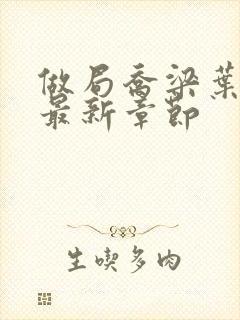 做局乔梁葉
最新章節
生喫多肉